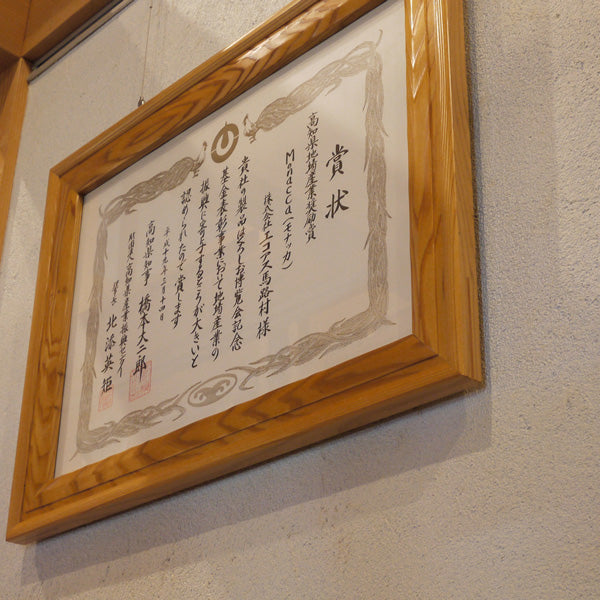 賞状
高知県地場産業奨励賞
Monacca(モナッカ)
株式会社エコアス馬路村様
貴社の製品はよさこい博覧会記念
基金表彰事業において地場産業の
振興に寄与するところが大きいと
認められたので賞します
平成十九年二月十四日
高知県知事 橋本大二郎
財団法人高知県産業振興センター
理事長 北添英矩